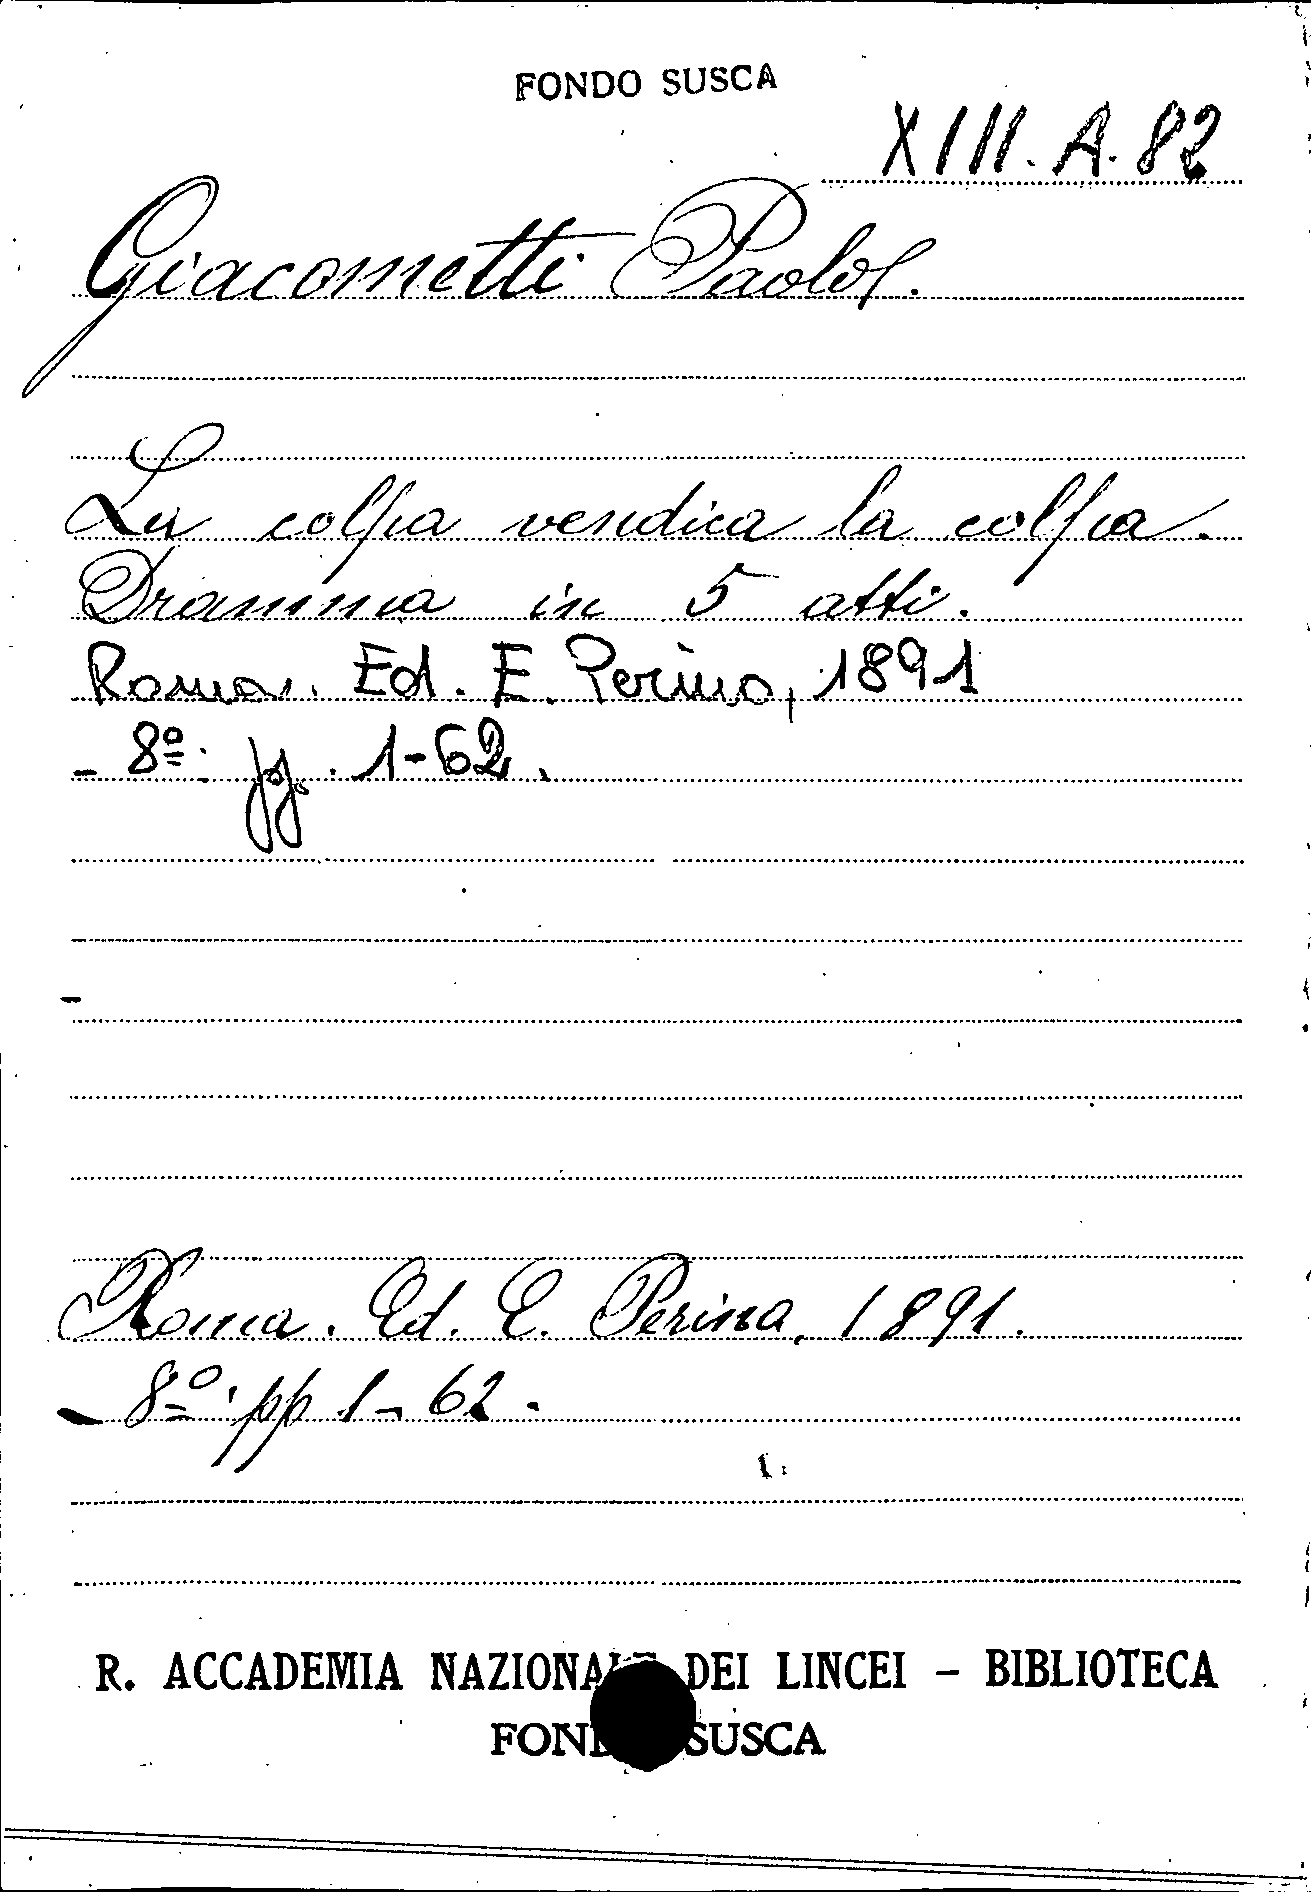 FONDO SUSCA
XIII. A. 82
Giacometti Paolo.
La colpa vendica la colpa.
Dramma in 5 atti.
Roma. Ed. E. Perino, 1891
- 8º. pp. 1-62.
Roma. Ed. E. Perino, 1891.
- 8º. pp 1-62.
R. ACCADEMIA NAZIONALE DEI LINCEI - BIBLIOTECA
FONDO SUSCA